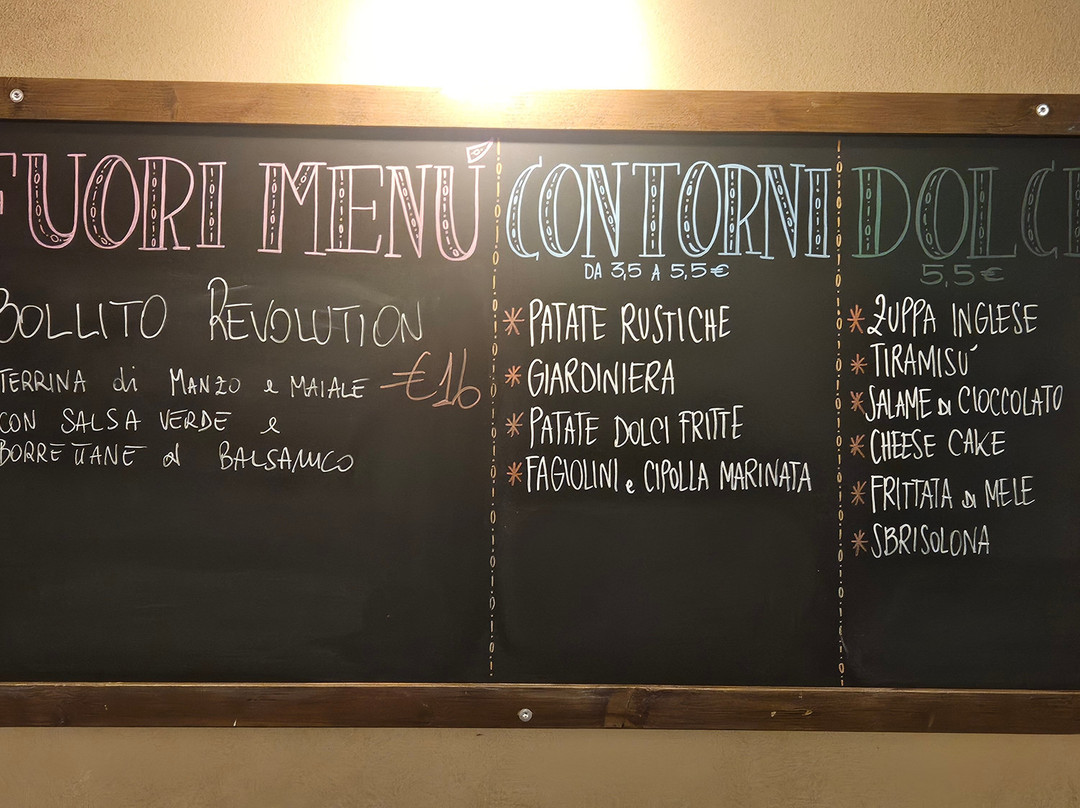 FUORI MENÚ
BOLLITO REVOLUTION
TERRINA di MANZO e MAIALE €16
CON SALSA VERDE e
BORRETTANE al BALSAMICO
CONTORNI
DA 3,5 A 5,5€
* PATATE RUSTICHE
* GIARDINIERA
* PATATE DOLCI FRITTE
* FAGIOLINI e CIPOLLA MARINATA
DOLCI
5,5€
* ZUPPA INGLESE
* TIRAMISU'
* SALAME DI CIOCCOLATO
* CHEESE CAKE
* FRITTATA DI MELE
* SBRISOLONA